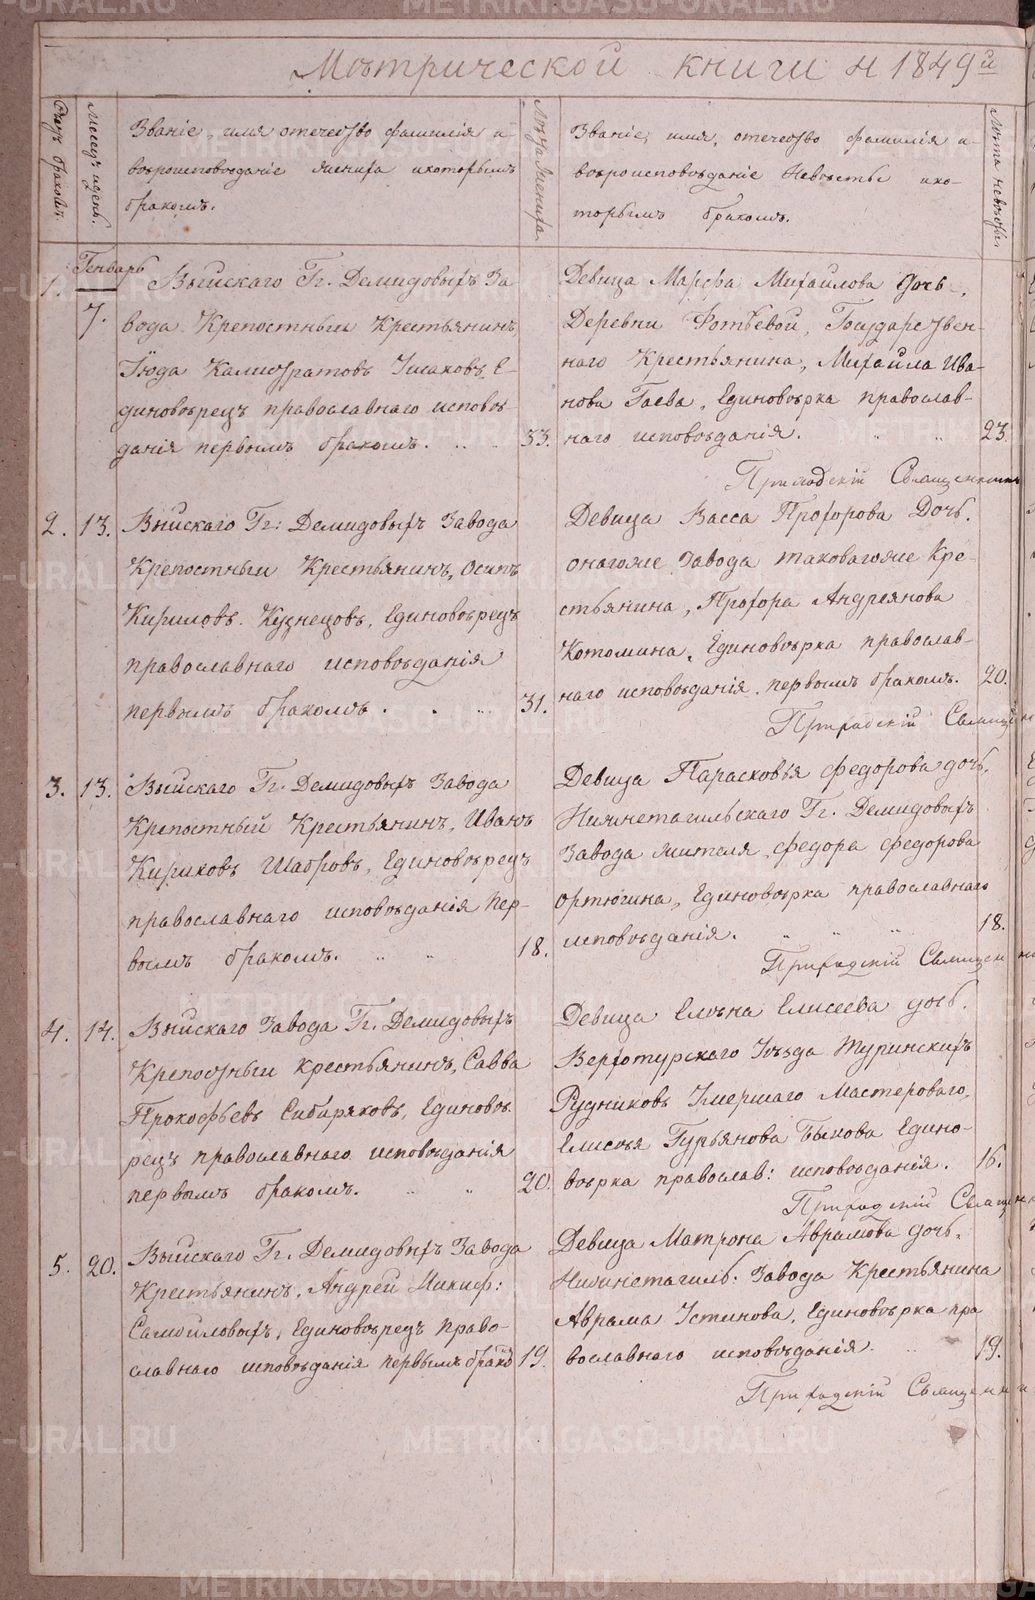 Мѣтрической книги н 1849й
Счетъ браковъ.
Месецъ и день.
Званіе, имя отечество фамилія и
вѣроисповѣданіе жениха и которымъ
бракомъ.
Лѣта жениха
Званіе, имя, отечество фамилія и
вѣроисповѣданіе Невѣсты и ко-
торымъ бракомъ.
Лѣта невѣсты
Генварь
1. 7.
Выйскаго Гг. Демидовыхъ За
вода Крепостный Крестьянинъ,
Іюда Калистратовъ Ушаковъ, Е-
диновѣрецъ православнаго исповѣ-
данія первымъ бракомъ. 33.
Девица Марфа Михайлова дочь,
Деревни Фотѣевой, Государствен-
наго Крестьянина, Михайла Ива-
нова Гаева, Единовѣрка православ-
наго исповѣданія. 23.
Приходскій Священникъ
2. 13. Выйскаго Гг: Демидовыхъ Завода
Крепостный Крестьянинъ, Осипъ
Кириловъ Кузнецовъ, Единовѣрецъ
православнаго исповѣданія
первымъ бракомъ. 31.
Девица Васса Прохорова Дочь.
онагоже Завода таковагоже Кре-
стьянина, Прохора Андреянова
Котомина, Единовѣрка православ-
наго исповѣданія, первымъ бракомъ. 20.
Приходскій Священ
3. 13. Выйскаго Гг. Демидовыхъ Завода
Крепостный Крестьянинъ, Иванъ
Кириковъ Шабровъ, Единовѣрецъ
православнаго исповѣданія Пер-
вымъ бракомъ. 18.
Девица Парасковья Федорова дочь,
Нижнетагильскаго Гг. Демидовыхъ
Завода жителя, Федора Федорова
Ортюгина, Единовѣрка православнаго
исповѣданія. 18.
Приходскій Священ
4. 14. Выйскаго Завода Гг. Демидовыхъ
Крепостный крестьянинъ, Савва
Прокофьевъ Сибиряковъ, Единовѣ-
рецъ православнаго исповѣданія
первымъ бракомъ. 20.
Девица Елена Елисеева дочь.
Верхотурскаго Уѣзда Туринскихъ
Рудниковъ Умершаго Мастероваго,
Елисѣя Гурьянова Быкова Едино-
вѣрка православ: исповѣданія. 16.
Приходскій Священ
5. 20. Выйскаго Гг. Демидовыхъ Завода
Крестьянинъ, Андрей Никиф:
Самойловыхъ, Единовѣрецъ Право-
славнаго исповѣданія первымъ брако 19.
Девица Матрона Аврамова дочь.
Нижнетагиль: Завода Крестьянина
Аврама Устинова, Единовѣрка пра
вославнаго исповѣданія. 19.
Приходскій Священни
METRIKI.GASO-URAL.RU